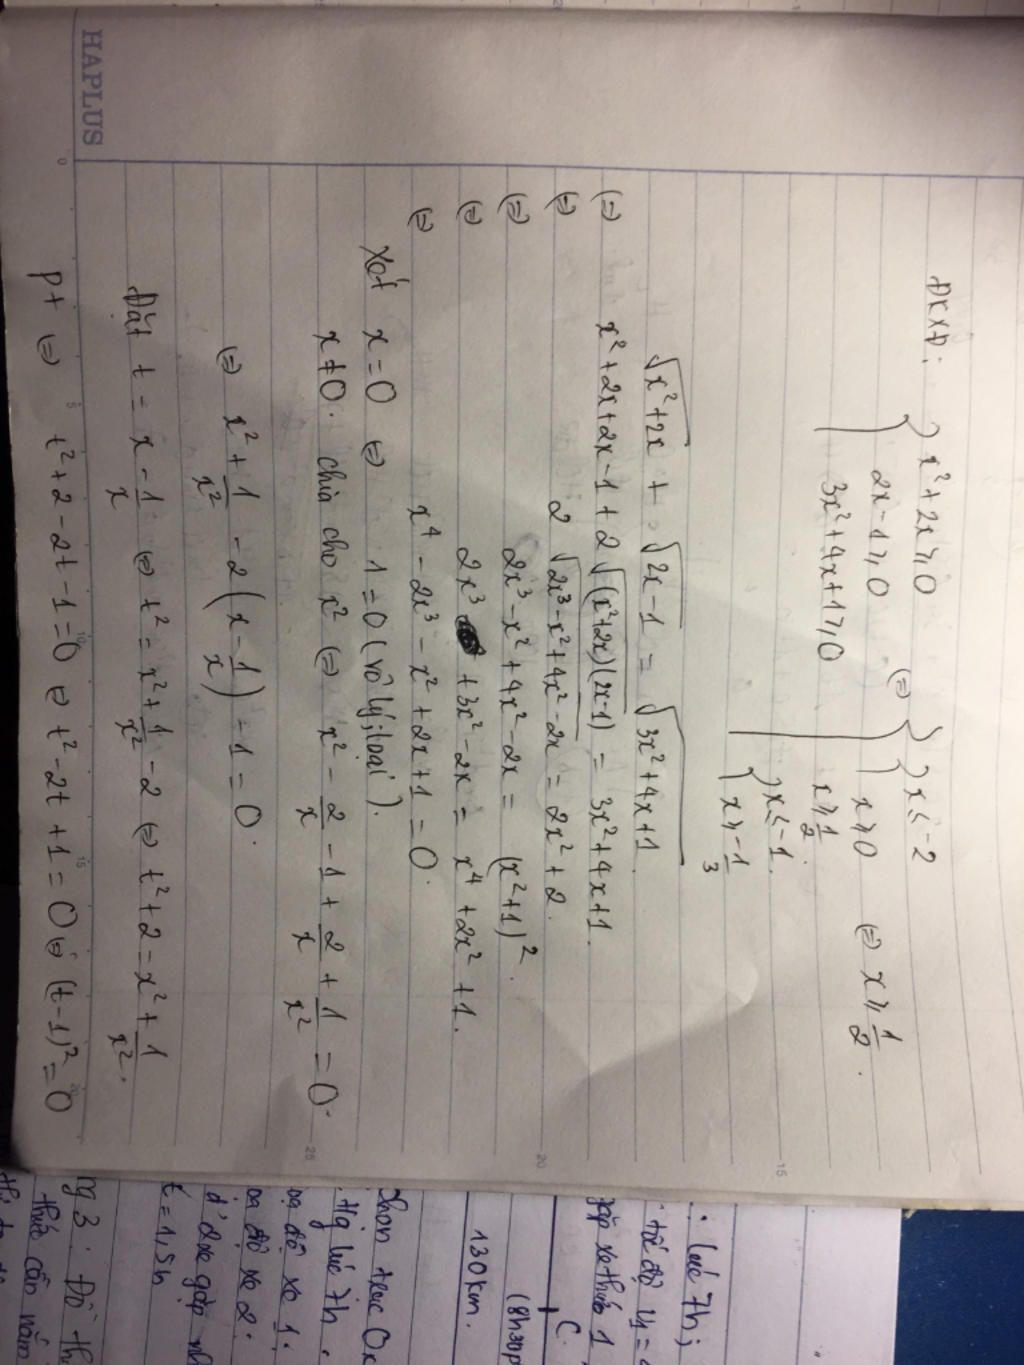 HAPLUS
ĐKXĐ: { x² + 2x ≥ 0
2x - 1 ≥ 0
3x² + 4x + 1 ≥ 0
(=) { [ x ≤ -2
x ≥ 0
x ≥ 1/2
[ x ≤ -1
x ≥ -1/3
(=) x ≥ 1/2.
√(x² + 2x) + √(2x - 1) = √(3x² + 4x + 1).
(=) x² + 2x + 2x - 1 + 2√((x² + 2x)(2x - 1)) = 3x² + 4x + 1.
(=) 2√(2x³ - x² + 4x² - 2x) = 2x² + 2.
(=) 2x³ - x² + 4x² - 2x = (x² + 1)².
(=) 2x³ + 3x² - 2x = x⁴ + 2x² + 1.
(=) x⁴ - 2x³ - x² + 2x + 1 = 0.
Xét x = 0 (=) 1 = 0 (vô lý; loại).
x ≠ 0. chia cho x² (=) x² - 2/x - 1 + 2/x + 1/x² = 0.
(=) x² + 1/x² - 2(x - 1/x) - 1 = 0.
Đặt t = x - 1/x (=) t² = x² + 1/x² - 2 (=) t² + 2 = x² + 1/x².
pt (=) t² + 2 - 2t - 1 = 0 (=) t² - 2t + 1 = 0 (=) (t - 1)² = 0
0 5 10 15 20
15
20
25
lúc 7h;
tốc độ v₁ =
gặp xe thứ 1
C.
(8h30p
130km.
Chọn trục Ox
lúc 7h.
toạ độ xe 1:
toạ độ xe 2:
2 xe gặp nh
t = 1,5h
ng 3: Đồ th
thức cần nắm